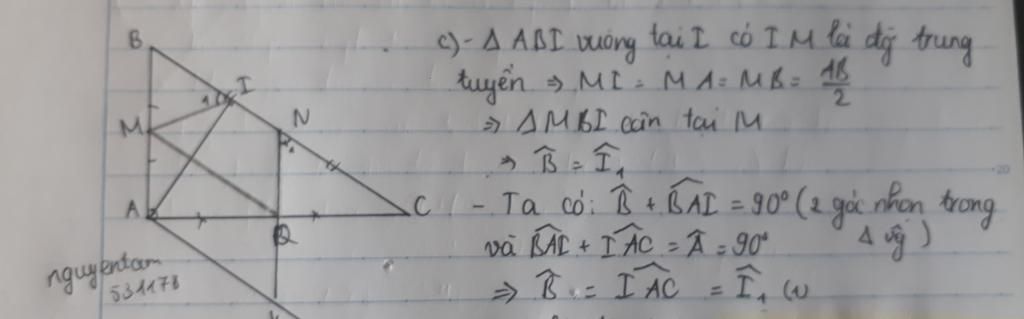 B
I
1
M
N
1
A
C
Q
nguyentam
531178
c) - Δ ABI vuông tại I có IM là đg trung
tuyến ⇒ MI = MA = MB = AB/2
⇒ ΔMBI cân tại M
⇒ B̂ = Î₁
- Ta có: B̂ + BÂI = 90° (2 góc nhọn trong
Δ vg)
và BÂI + IÂC = Â = 90°
⇒ B̂ = IÂC = Î₁ (1)